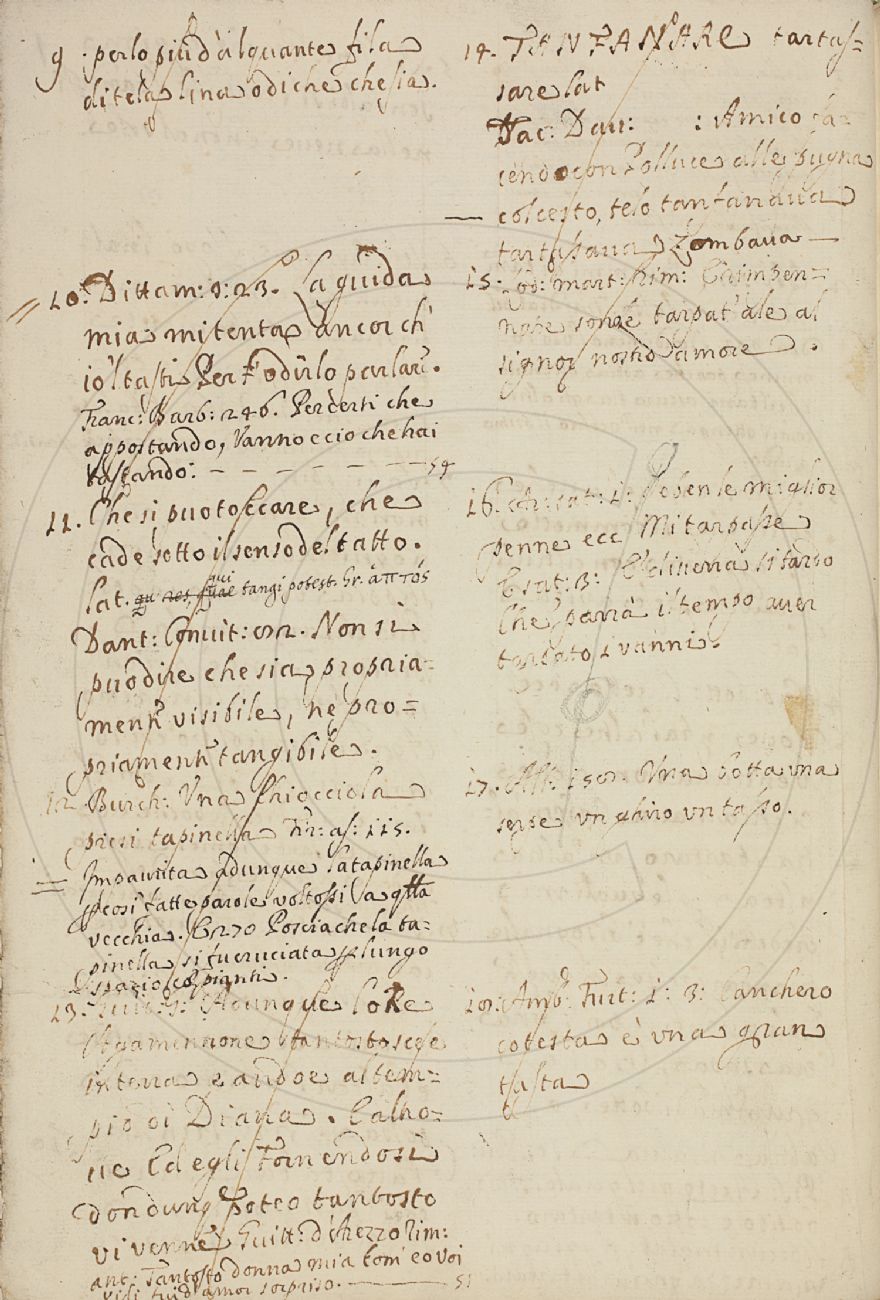 9. per lo più d'alquante fila
di tela lina o di che che sia.
10. Dittam: 1: 23. La guida
mia mi tenta ancor ch'
io'l tasti Per odirlo parlar.
Franc: Barb: 246. Perderti che
appostando, Vanno ecciò che hai
tastando: — — — — — — 54
11. Che si può toccare, che
cade sotto il senso del tatto.
lat. qui tangi potest. Gr. ἁπτός
Dant: Convit: Non si
può dire che sia propria=
ment' visibile, ne pro=
priament' tangibile.
12 Burch: Una chiocciola
presi tapinella Fir: as: 115.
Impaurita adunque la tapinella
p così fatte parole voltossi a qlla
vecchia. E 270 Poscia che la ta=
pinella si fu cruciata p lungo
spazio co' pianti.
13. Adunque lo Re
Agamennone tantosto scese
in terra e andoe al tem=
pio di Diana. E altro=
ve Ed egli tornendosi
dond' unq poteo tantosto
vi venne Guitt: d'Arezzo rim:
ant: Tantosto donna mia com' eo voi
vidi fui d'amor sorpriso. — 51
14. TANFANARE tartas=
sare lat
Tac: Dav: : Amico fa=
cendo con Polluce alle pugna
col cesto, telo tanfanava
tartassava, Zombava —
15. Lod: mart: rim: E'impen=
nate son le tarpat' ale al
signor nostro amore.
16. Ar: sat: 1: Se ben le miglior
penne ecc Mi tarpasse
E sat: 3: E di verrà sì tardo
Che parrà il tempo aver
tarpato i vanni.
17. Una botta una
serpe un ghiro un tasso.
18. Amb: Furt: 1: 3: Canchero
cotesta è una gran
tasta